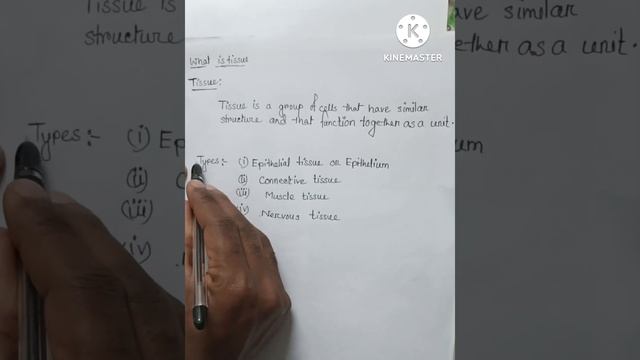 What is tissue
Tissue:
Tissue is a group of cells that have similar
structure and that function together as a unit.
Types:- (i) Epithelial tissue or Epithelium
(ii) Connective tissue
(iii) Muscle tissue
(iv) Nervous tissue
KINEMASTER